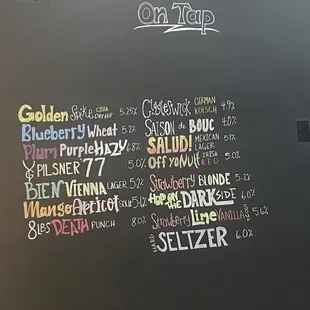 On Tap
Golden Spike CITRA DRY HOP 5.25%
Blueberry Wheat 5.2%
Plum Purple HAZY 6.8%
PILSNER 77 5.0%
BIEN VIENNA LAGER 5.2%
Mango Apricot SOUR 5.4%
8LBS DEATH PUNCH 8.0%
Giggleswick GERMAN KOLSCH 4.9%
SAISON de BOUC 4.0%
SALUD! MEXICAN LAGER 5.1%
Off yo Nut IRISH RED 5.0%
Strawberry BLONDE 5.2%
HOP ON THE DARK SIDE 6.0%
Strawberry Lime VANILLA 5.6%
HARD SELTZER 6.0%